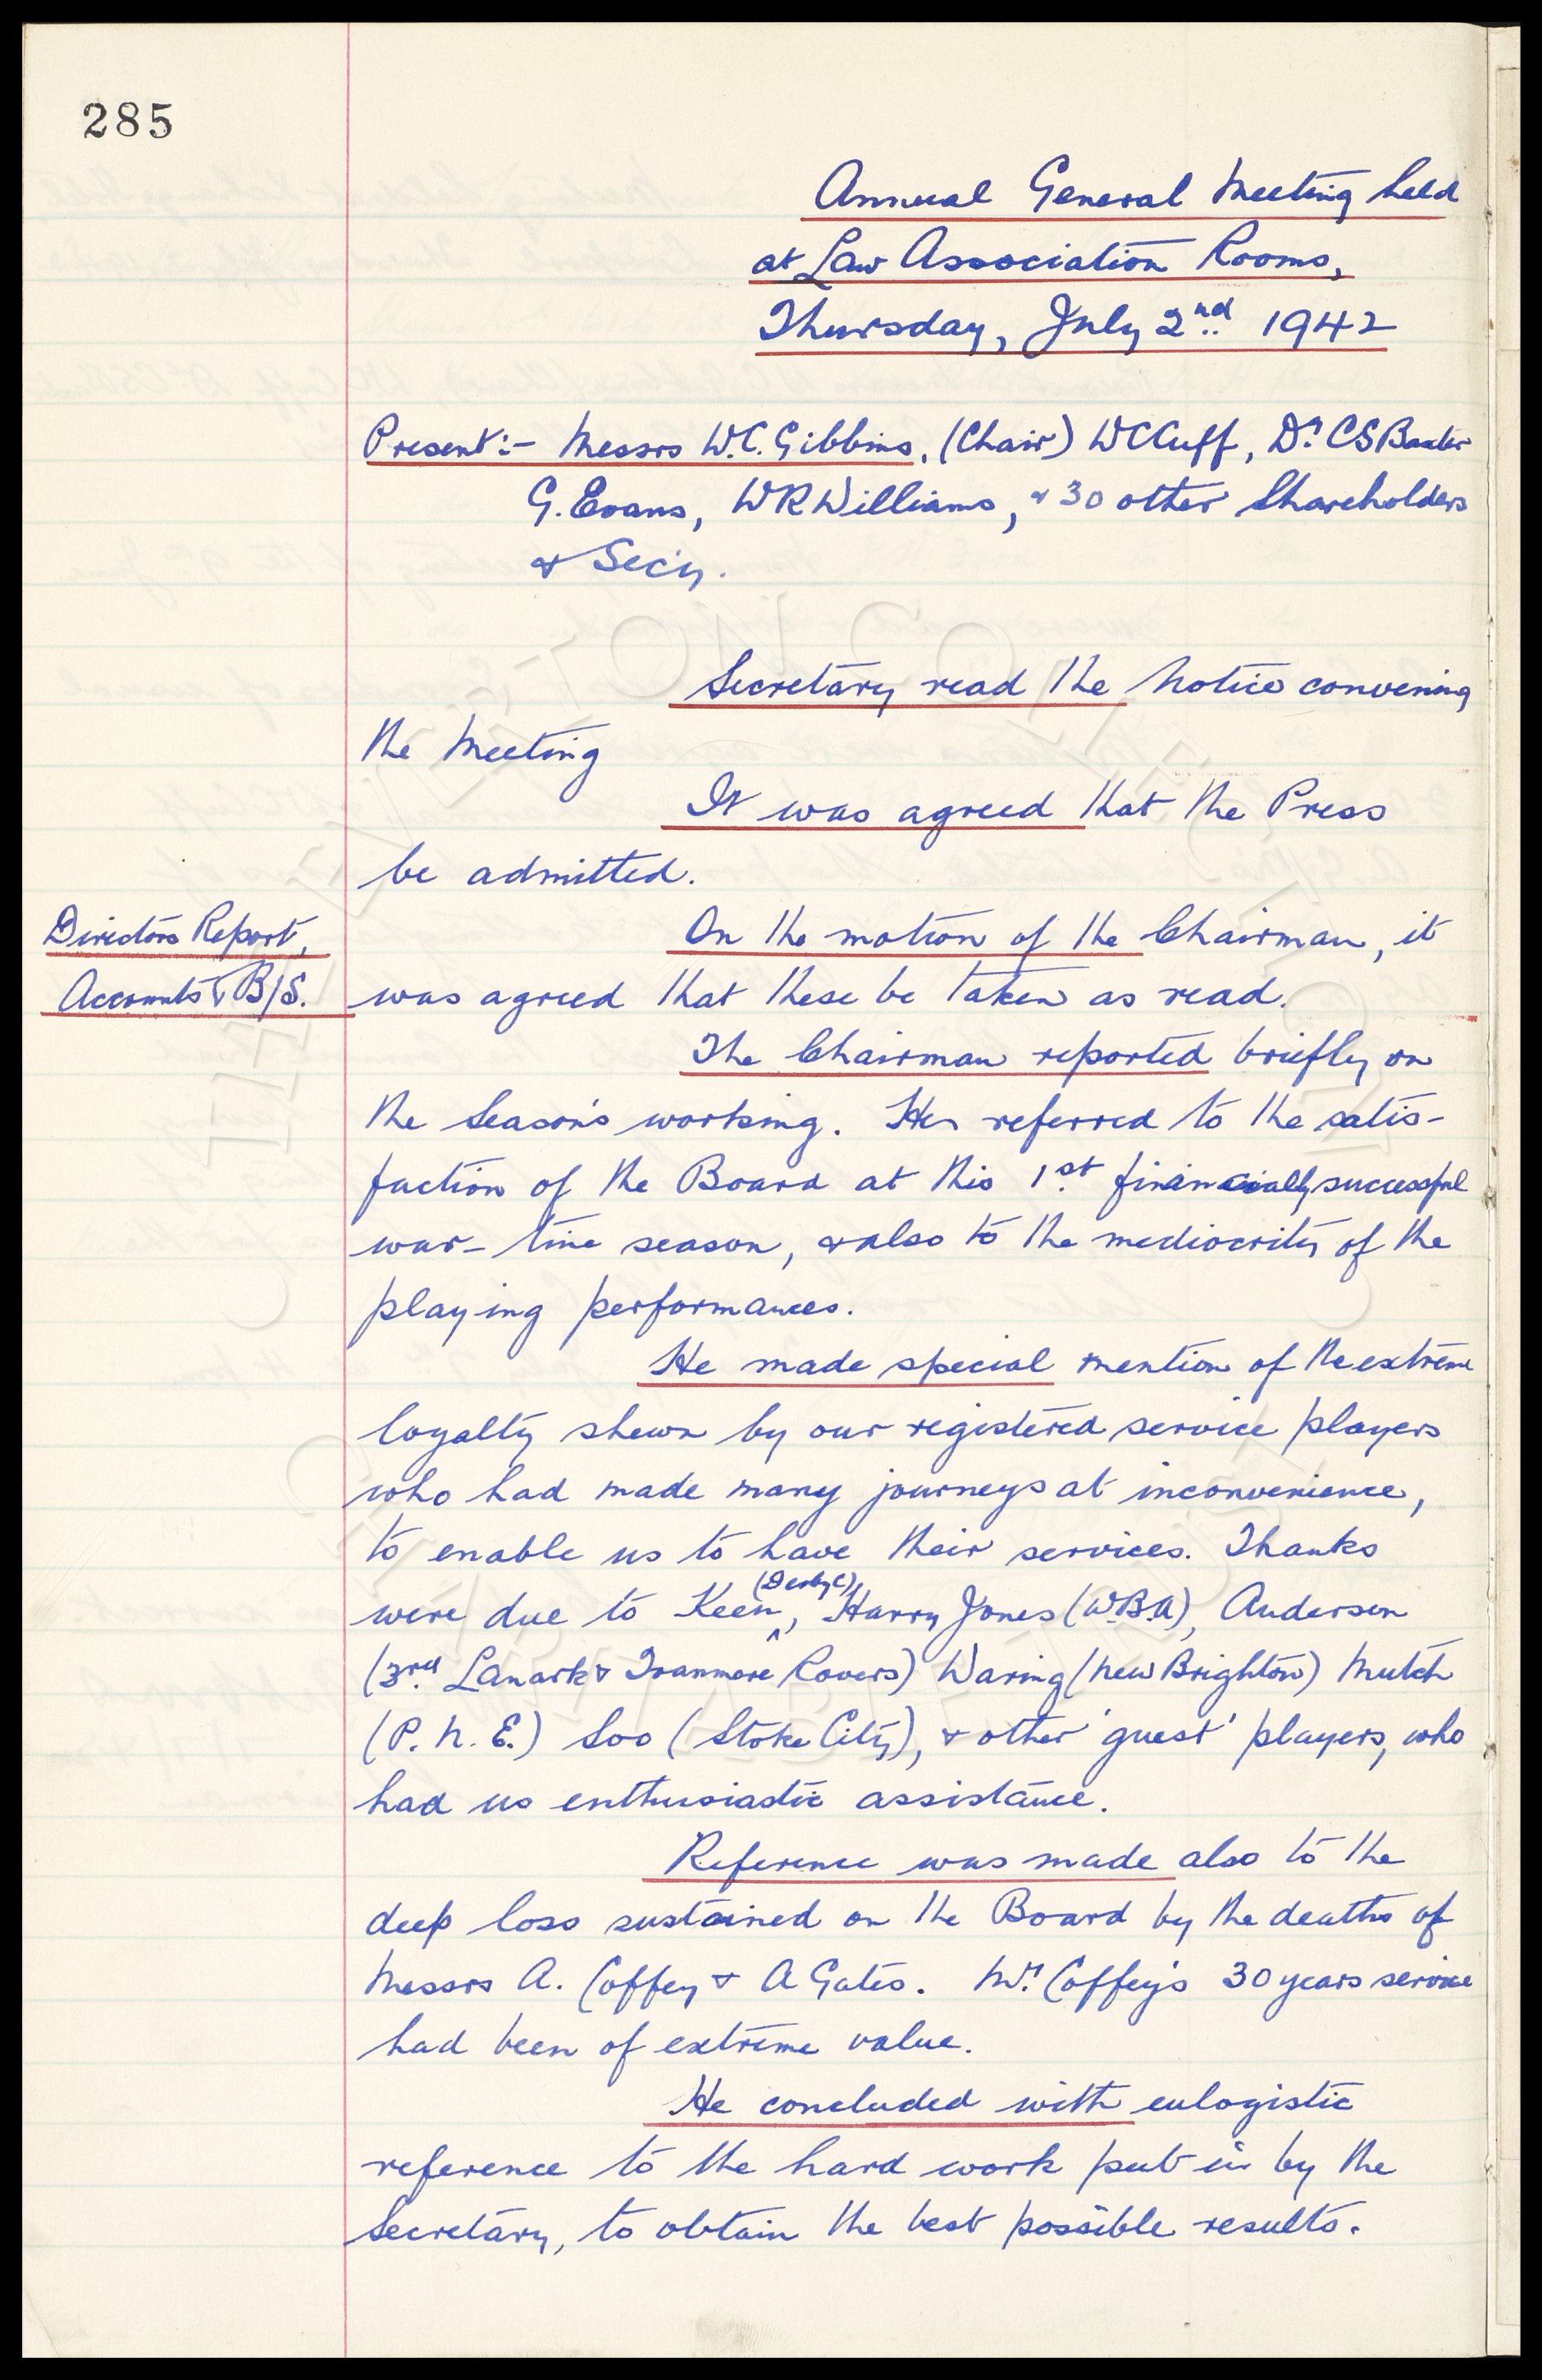 285
Annual General Meeting held
at Law Association Rooms,
Thursday, July 2nd 1942
Present:- Messrs W.C. Gibbins, (Chair) WCCuff, Dr CSBaxter
G. Evans, WRWilliams, & 30 other Shareholders
& Sec'y.
Secretary read the Notice convening
the Meeting
It was agreed that the Press
be admitted.
Directors Report,
Accounts & B/S.
On the motion of the Chairman, it
was agreed that these be taken as read.
The Chairman reported briefly on
the Season's working. He referred to the satis-
faction of the Board at this 1st financially successful
war-time season, & also to the mediocrity of the
playing performances.
He made special mention of the extreme
loyalty shewn by our registered service players
who had made many journeys at inconvenience,
to enable us to have their services. Thanks
were due to Keen (Derby C), Harry Jones (W.B.A), Anderson
(3rd Lanark & Tranmere Rovers) Waring (New Brighton) Mutch
(P.N.E.) Soo (Stoke City), & other 'guest' players, who
had us enthusiastic assistance.
Reference was made also to the
deep loss sustained on the Board by the deaths of
Messrs A. Coffey & A Gates. Mr Coffey's 30 years service
had been of extreme value.
He concluded with eulogistic
reference to the hard work put in by the
Secretary, to obtain the best possible results.